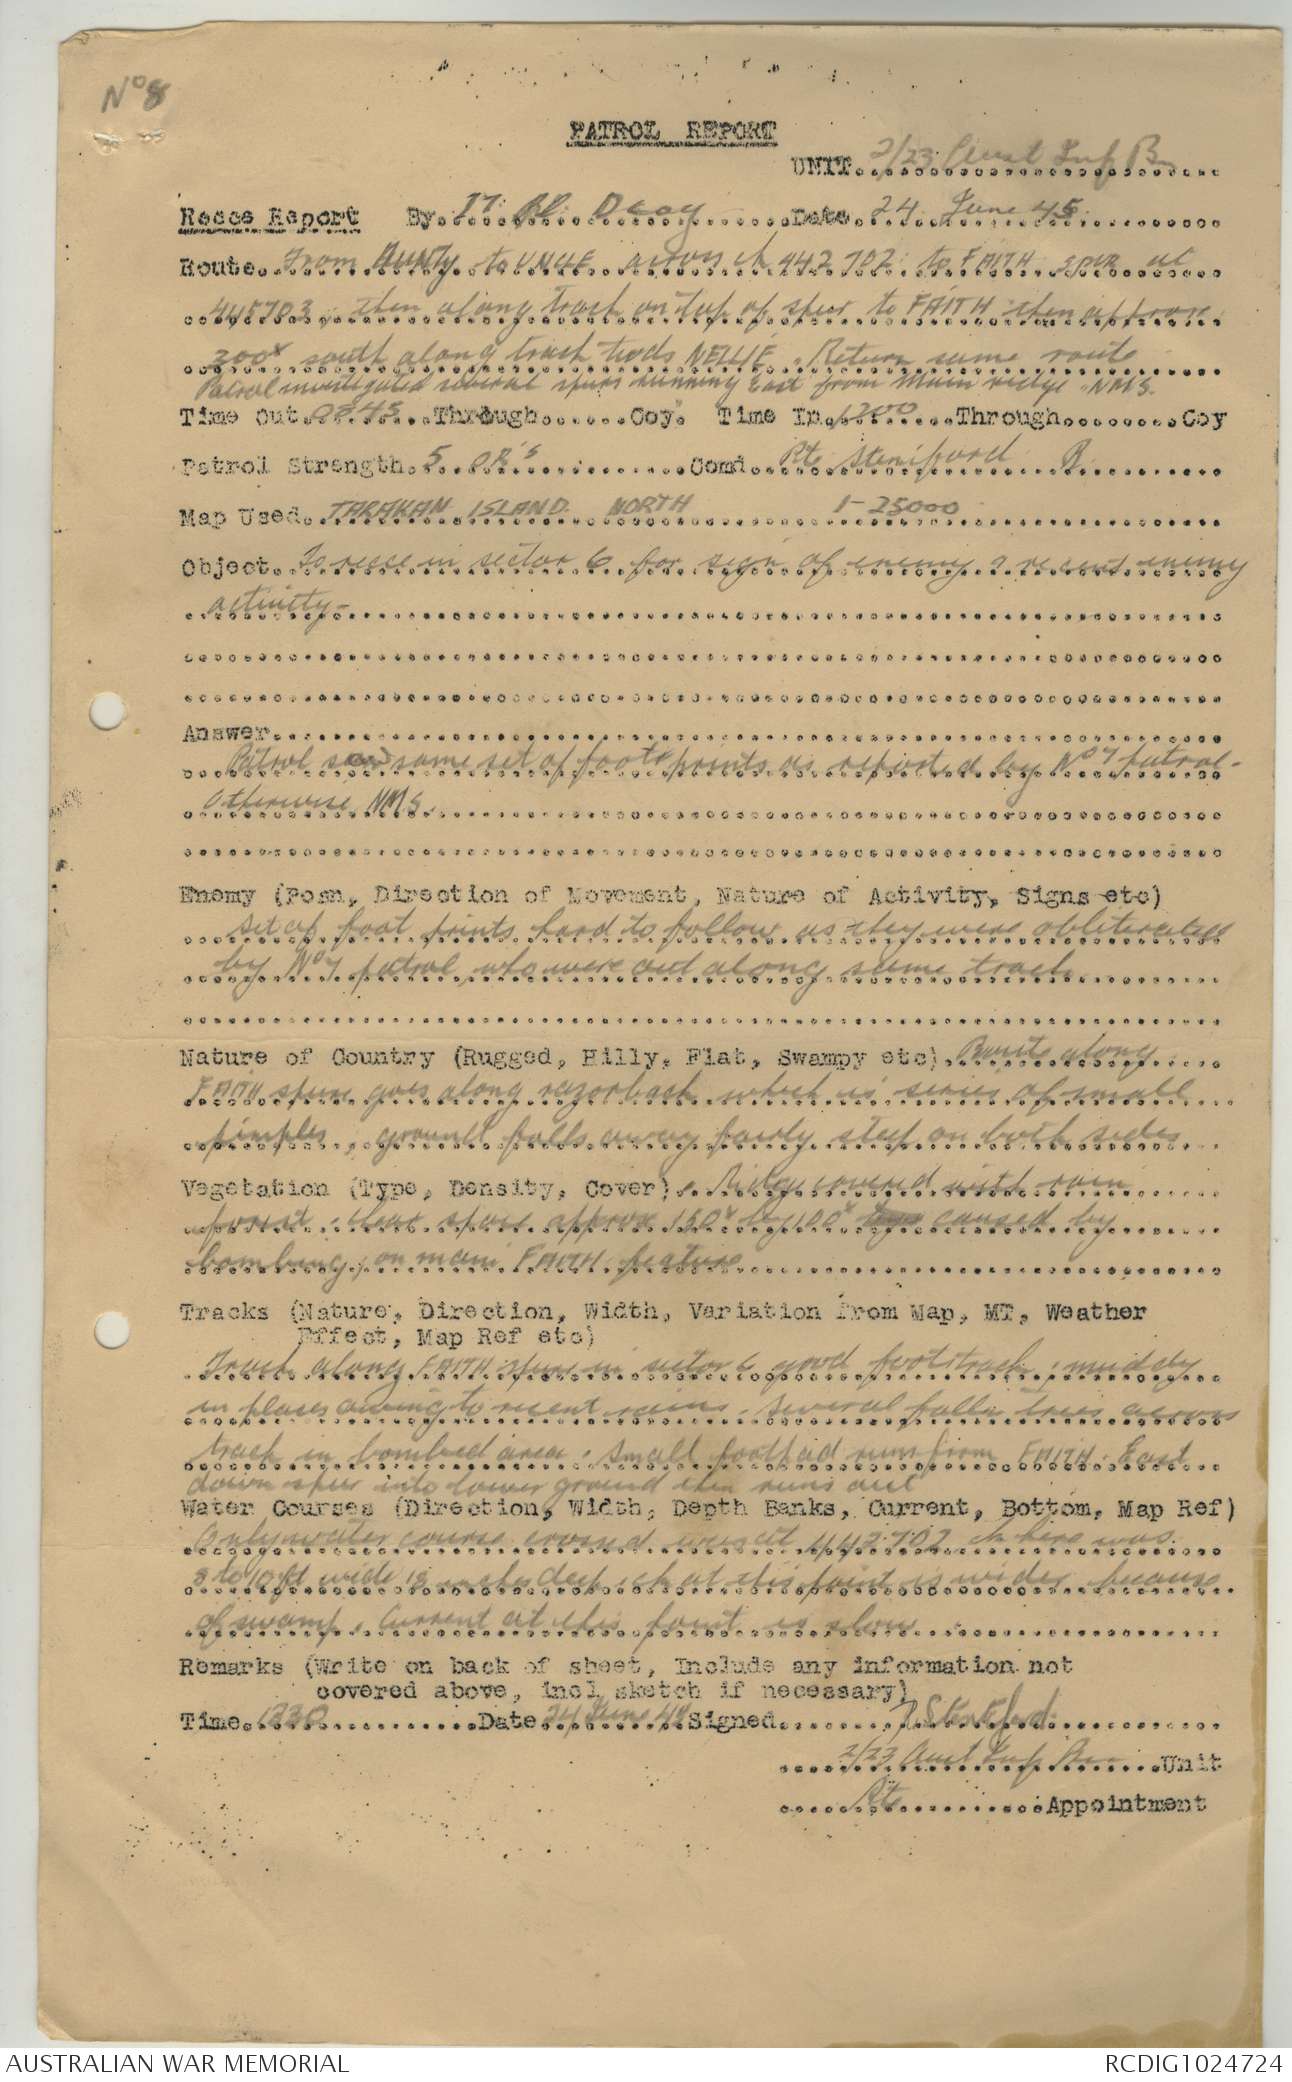 No 8
PATROL REPORT
UNIT 2/23 Aust Inf Bn
Recce Report By 17 Pl D Coy Date 24 June 45
Route From AUNTY to UNCLE across ck 442702 to FAITH spur at
445703 then along track on top of spur to FAITH then approx
300x south along track twds NELLIE. Return same route
Patrol investigated several spurs running East from main ridge NMS.
Time Out 0845 Through Coy. Time In 1200 Through Coy
Patrol Strength 5 OR's Comd Pte Steniford
Map Used TARAKAN ISLAND NORTH 1-25000
Object To recce in sector 6 for sign of enemy & recent enemy
activity-
Answer
Patrol saw same set of foot prints as reported by No 7 patrol-
Otherwise NMS.
Enemy (Posn, Direction of Movement, Nature of Activity, Signs etc)
Set of foot prints hard to follow as they were obliterated
by No 7 patrol who were out along same track
Nature of Country (Rugged, Hilly, Flat, Swampy etc) Route along
FAITH spur goes along razorback which is series of small
pimples, ground falls away fairly steep on both sides
Vegetation (Type, Density, Cover) Ridge covered with rain
forest. Clear space approx 150x by 100x caused by
bombing, on main FAITH feature
Tracks (Nature, Direction, Width, Variation from Map, MT, Weather
Effect, Map Ref etc)
Track along FAITH spur in sector 6 good foot track, muddy
in places owing to recent rains. Several falln trees across
track in bombed area. Small footpad runs from FAITH East
down spur into lower ground then runs out
Water Courses (Direction, Width, Depth Banks, Current, Bottom, Map Ref)
Only water course crossed was at 442702 ck here was
8 to 10 ft wide 18 inches deep ck at this point is wider because
of swamp. Current at this point is slow
Remarks (Write on back of sheet, Include any information not
covered above, incl sketch if necessary)
Time 1330 Date 24 June 45 Signed Steniford
2/23 Aust Inf Bn Unit
Pte Appointment
AUSTRALIAN WAR MEMORIAL
RCDIG1024724